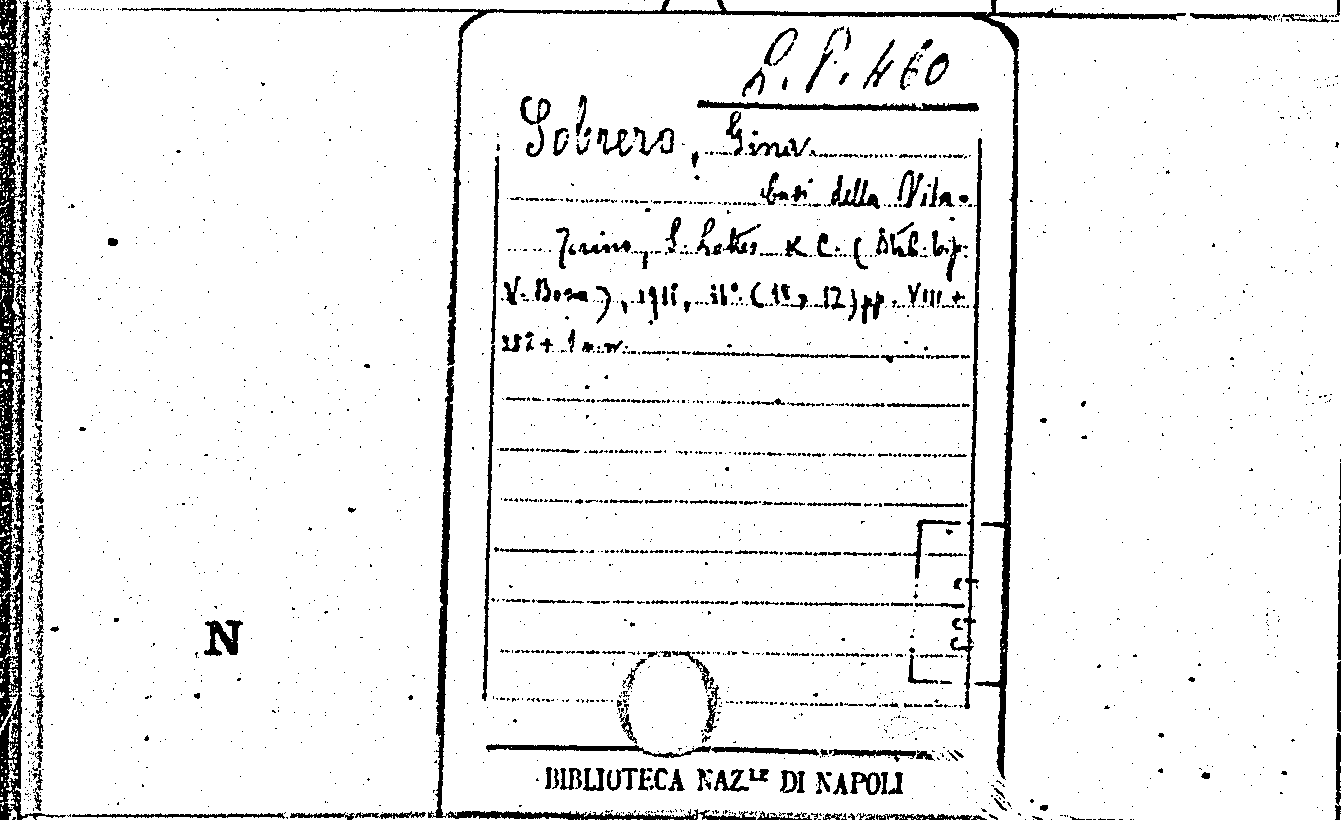 L. P. 460
Sobrero, Gina
Casi della Vita.
Torino, S. Lattes & C. (Stab. tip.
V. Bona), 1911, 16° (18, 12) pp. VIII +
282 + 1 n. n.
N
BIBLIOTECA NAZ.LE DI NAPOLI